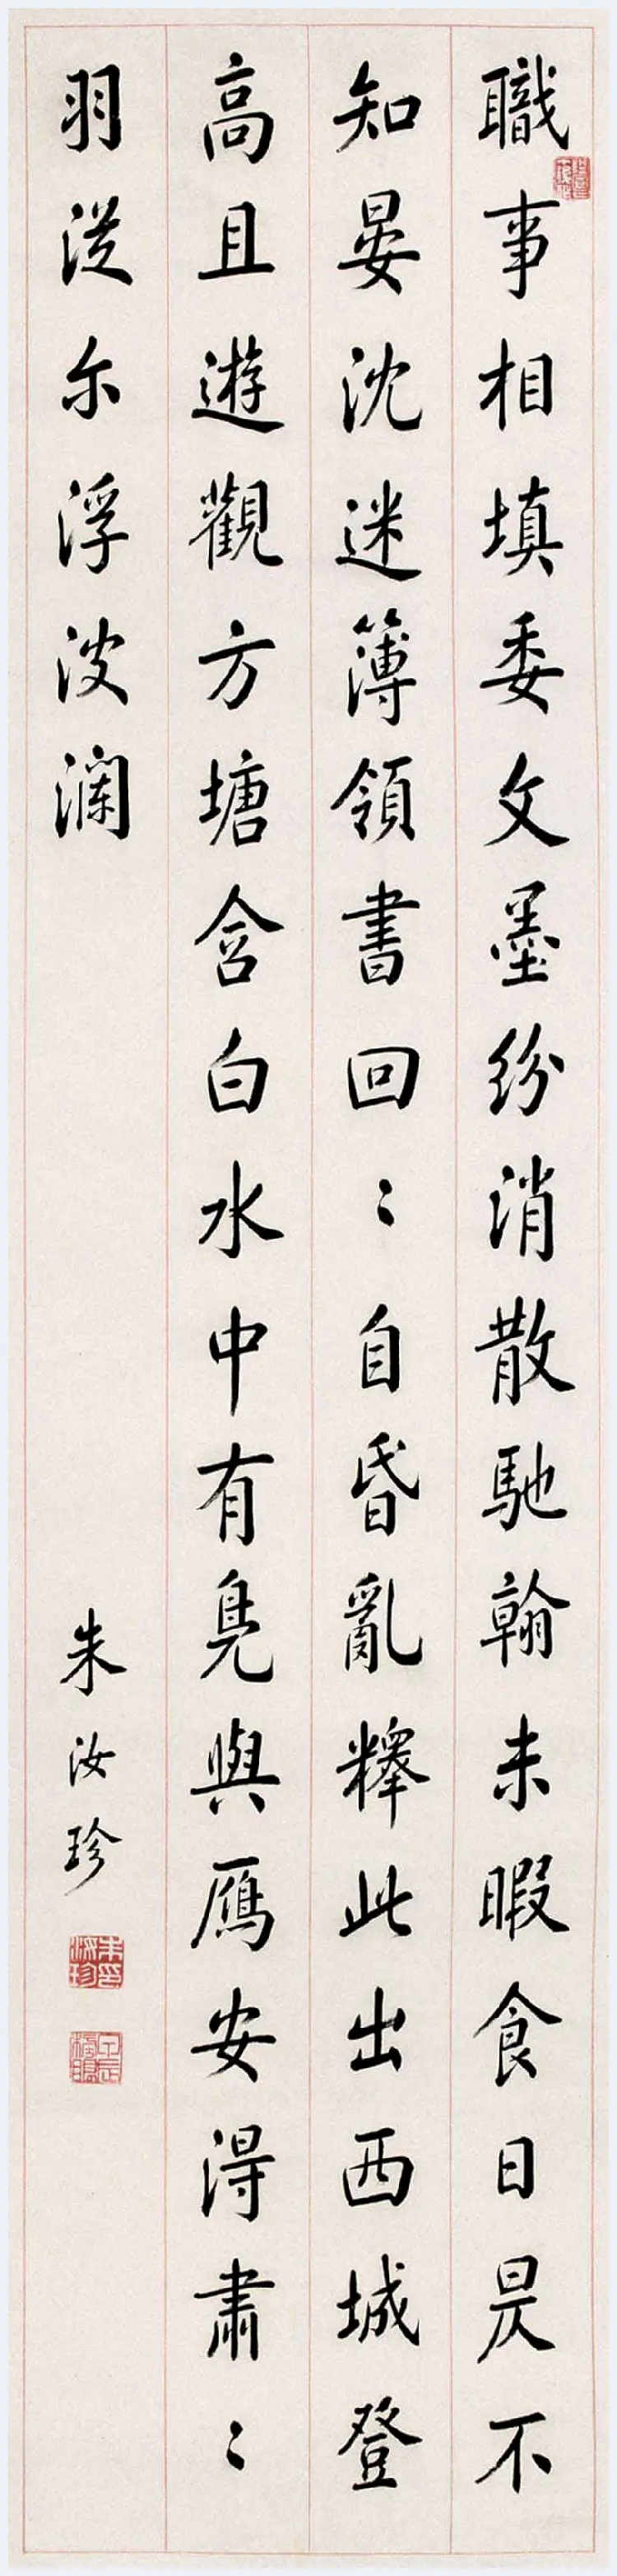 職事相填委文墨紛消散馳翰未暇食日昃不
知晏沈迷簿領書回〻自昏亂釋此出西城登
高且遊觀方塘含白水中有鳧與鴈安得肅〻
羽從尔浮波瀾
朱汝珍
朱汝珍印